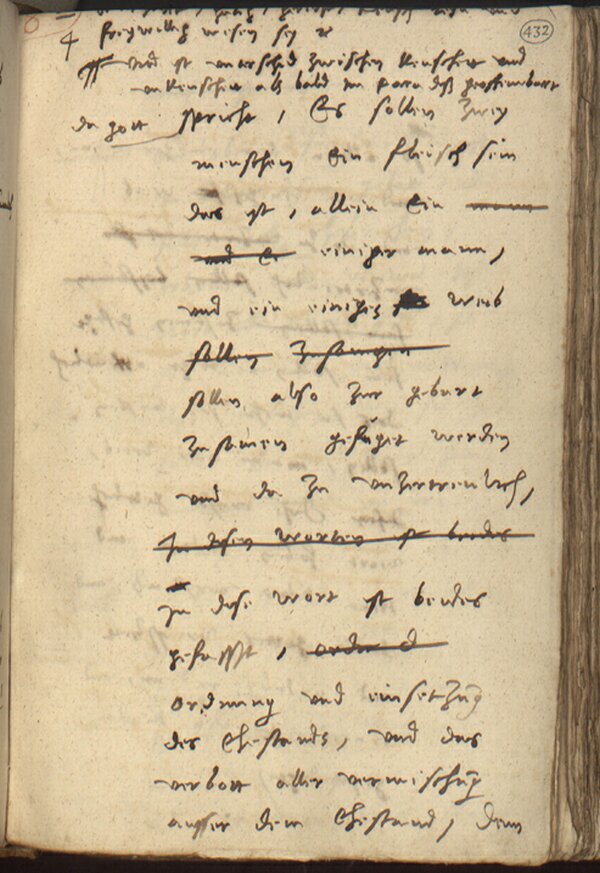 432
freywillig wesen sey
und ist underschid zwischen keuscheit und
unkeuscheit als bald im paradiß
da gott spricht, Es sollen zwey
menschen Ein fleisch sein
das ist, allein Ein mann
und Ein einiger mann,
und ein einiges weib
sollen zusamen
sollen also zur geburt
zusamen gefüget werden
und da zu unzertrenlich,
In disen worten ist beides
In dise wort ist beides
gefasst, ordnu
ordnung und einsetzung
des Ehestands, und das
verbott aller vermischung
ausser dem Ehestand, denn